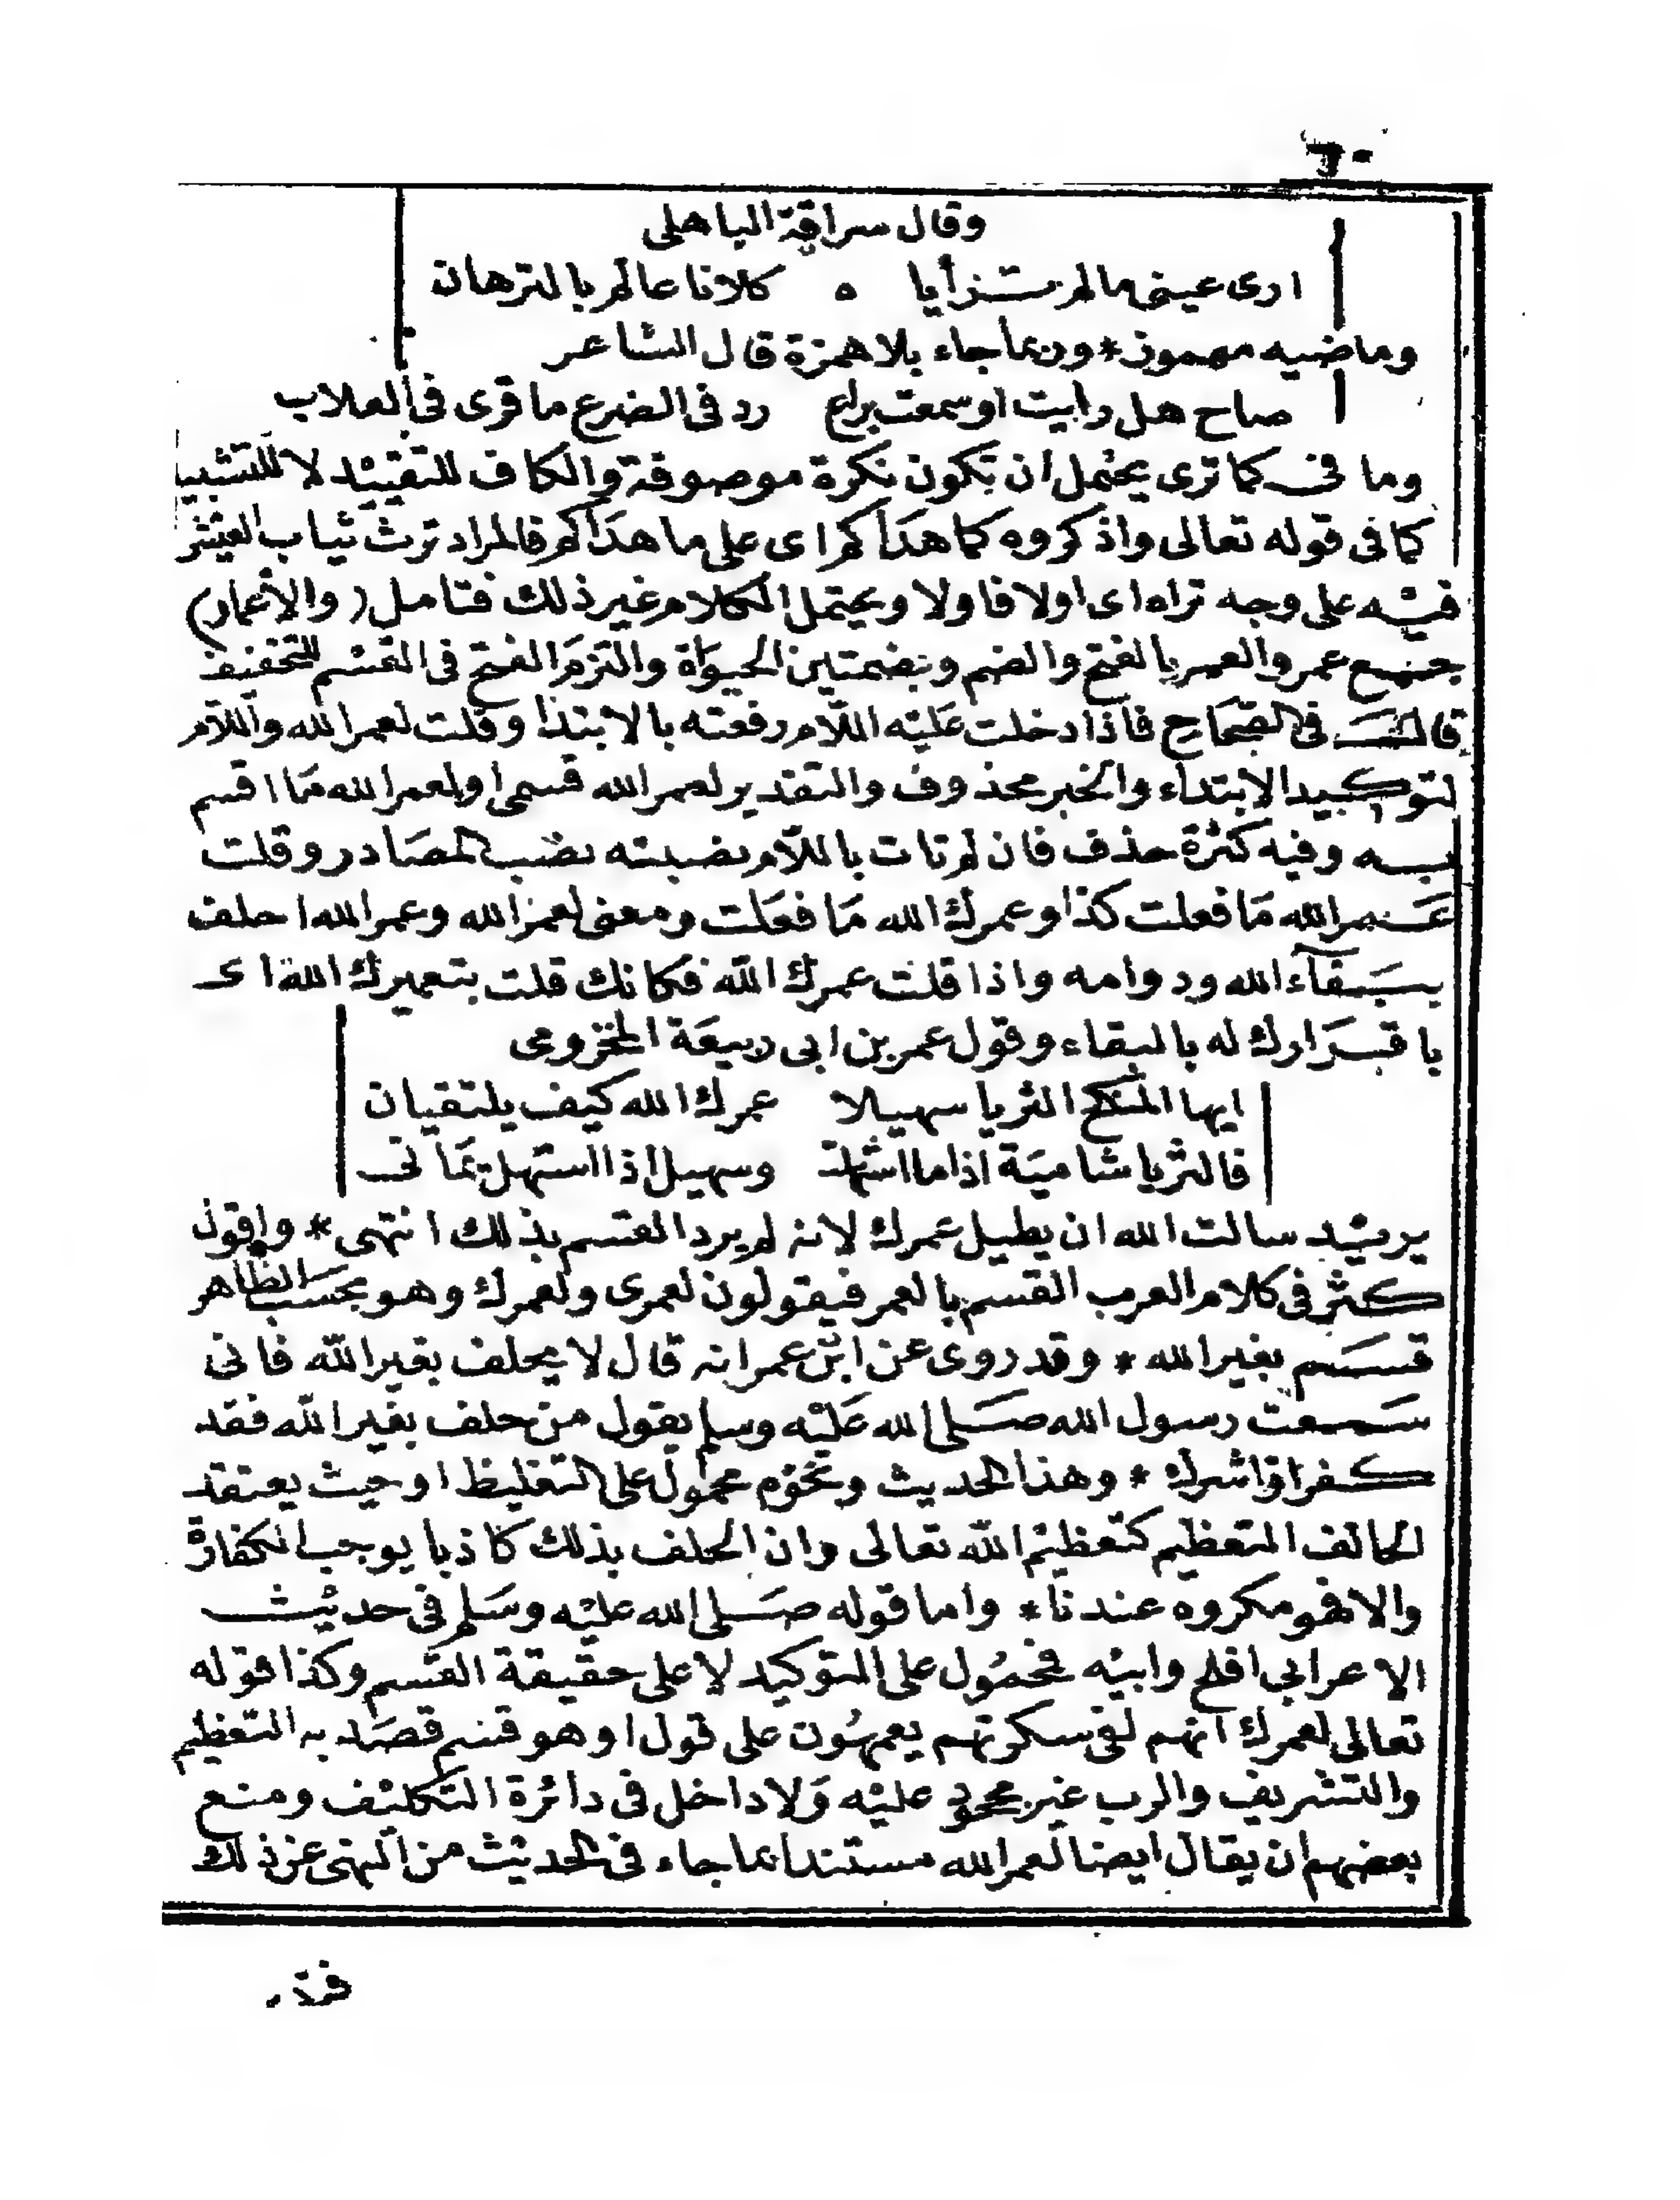 وقال سراقة الباهلى
ارى عينى مالم ترأيا ه كلانا عالم بالترهات
وماضيه مهموز * وربما جاء بلا همزة قال الشاعر
صاح هل رايت او سمعت براع رد فى الضرع ما قرى فى العلاب
وما فى كما ترى يحتمل ان تكون نكرة موصوفة والكاف للتقييد لا للتشبيه
كما فى قوله تعالى واذكروه كما هداكم اى على ما هداكم فالمراد ترث ثياب العيش
فيه على وجه تراه اى اولا فاولا ويحتمل الكلام غير ذلك فتامل (والأعمار)
جمع عمر والعمر بالفتح والضم وبضمتين الحيواة والتزم الفتح فى القسم للتخفيف
قال فى الصحاح فاذا دخلت عليه اللام رفعته بالابتدا وقلت لعمر الله واللام
لتوكيد الابتداء والخبر محذوف والتقدير لعمر الله قسمى او لعمر الله ما اقسم
به وفيه كثرة حذف فان لم تات باللام نصبته نصب المصادر وقلت
عمر الله ما فعلت كذا وعمرك الله ما فعلت ومعنى لعمر الله وعمر الله احلف
ببقآء الله ودوامه واذا قلت عمرك الله فكانك قلت بتعميرك الله اى
باقرارك له بالبقاء وقول عمر بن ابى ربيعة المخزومى
ايها المنكح الثريا سهيلا عمرك الله كيف يلتقيان
فالثريا شامية اذا ما استهلت وسهيل اذا استهل يمانى
يريد سالت الله ان يطيل عمرك لانه لم يرد القسم بذلك انتهى * واقول
كثر فى كلام العرب القسم بالعمر فيقولون لعمرى ولعمرك وهو بحسب الظاهر
قسم بغير الله * وقد روى عن ابن عمر انه قال لا يحلف بغير الله فانى
سمعت رسول الله صلى الله عليه وسلم يقول من حلف بغير الله فقد
كفر او اشرك * وهذا الحديث ونحوه محمول على التغليظ او حيث يعتقد
الحالف التعظيم كتعظيم الله تعالى وان الحلف بذلك كاذبا يوجب الكفارة
والا فهو مكروه عندنا * واما قوله صلى الله عليه وسلم فى حديث
الاعرابي افلح وابيه فمحمول على التوكيد لا على حقيقة القسم وكذا قوله
تعالى لعمرك انهم لفى سكرتهم يعمهون على قول او هو قسم قصد به التعظيم
والتشريف والرب غير محجور عليه ولا داخل فى دائرة التكليف ومنع
بعضهم ان يقال ايضا لعمر الله مستندا بما جاء فى الحديث من النهى عن ذلك